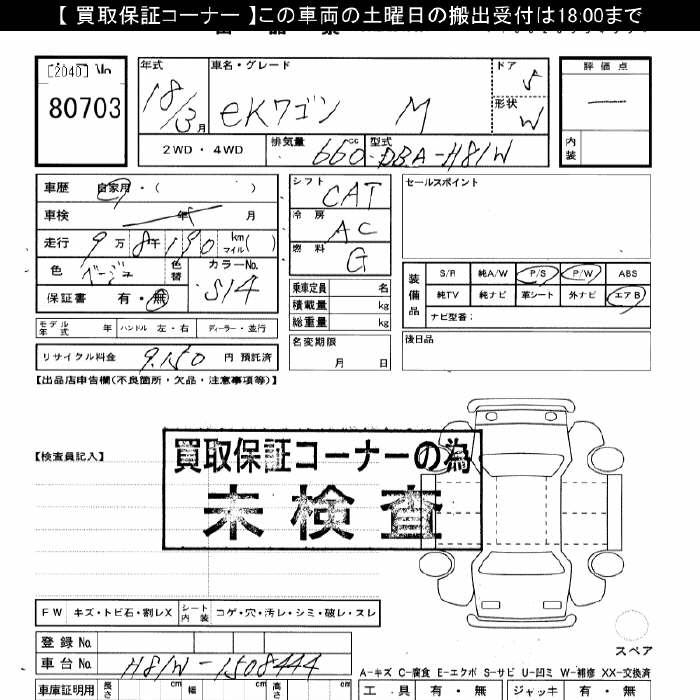 【 買取保証コーナー 】この車両の土曜日の搬出受付は18:00まで
[2040]
80703
年式
18/3月
車名・グレード
eKワゴン M
ドア
5
形状
W
評価点
内装
2WD・4WD
排気量 660cc
型式 DBA-H81W
車歴 自家用・( )
車検 年 月
走行 9万8千190 km マイル( )
色 ベージュ 色替
カラーNo. S14
保証書 有・無
モデル年式 年 ハンドル 左・右 ディーラー・並行
リサイクル料金 9,150 円 預託済
シフト CAT
冷房 AC
燃料 G
乗車定員 名
積載量 kg
総重量 kg
名変期限
月 日
セールスポイント
装備品
S/R 純A/W P/S P/W ABS
純TV 純ナビ 革シート 外ナビ エアB
ナビ型番:
後日品
【出品店申告欄(不良箇所・欠品・注意事項等)】
【検査員記入】
買取保証コーナーの為
未検査
FW キズ・トビ石・割レX シート内装 コゲ・穴・汚レ・シミ・破レ・スレ
スペア
登録 No
車台 No H81W-1508444
A-キズ C-腐食 E-エクボ S-サビ U-凹ミ W-補修 XX-交換済
車庫証明用 長さ cm 幅 cm 高さ cm
工具 有・無 ジャッキ 有・無